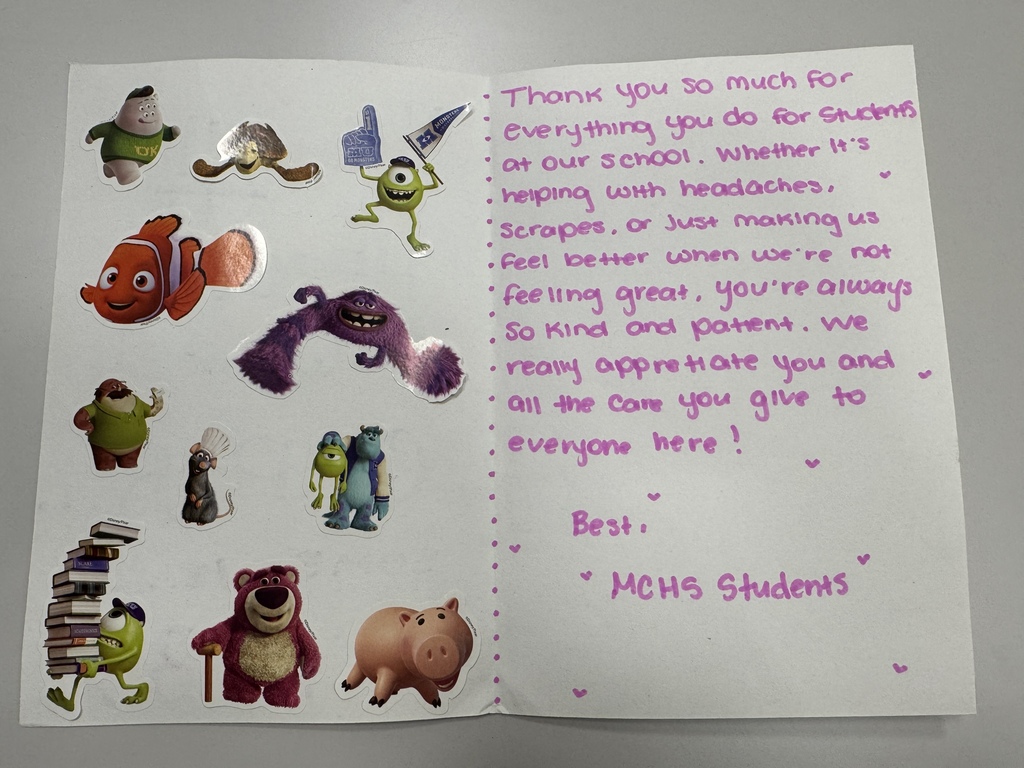 OK
MONSTERS
SCARE
Thank you so much for
everything you do for students
at our school. Whether it's
helping with headaches,
scrapes, or just making us
feel better when we're not
feeling great, you're always
so kind and patient. We
really appretiate you and
all the care you give to
everyone here!
Best,
MCHS Students